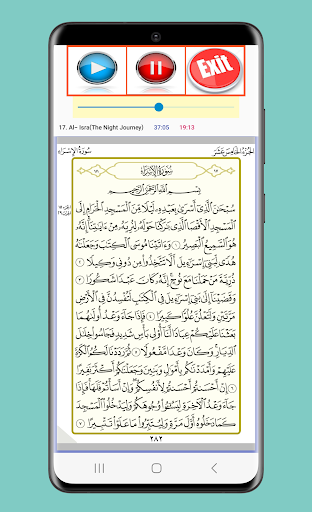 Exit
17. Al- Isra(The Night Journey) 37:05 19:13
الجزء الخامس عشر
سورة الإسراء
سُورَةُ الإِسْرَاءِ
بِسْمِ ٱللَّهِ ٱلرَّحْمَٰنِ ٱلرَّحِيمِ
سُبْحَٰنَ ٱلَّذِىٓ أَسْرَىٰ بِعَبْدِهِۦ لَيْلًا مِّنَ ٱلْمَسْجِدِ ٱلْحَرَامِ إِلَى
ٱلْمَسْجِدِ ٱلْأَقْصَا ٱلَّذِى بَٰرَكْنَا حَوْلَهُۥ لِنُرِيَهُۥ مِنْ ءَايَٰتِنَآ إِنَّهُۥ
هُوَ ٱلسَّمِيعُ ٱلْبَصِيرُ ١ وَءَاتَيْنَا مُوسَى ٱلْكِتَٰبَ وَجَعَلْنَٰهُ
هُدًى لِّبَنِىٓ إِسْرَٰٓءِيلَ أَلَّا تَتَّخِذُوا۟ مِن دُونِى وَكِيلًا ٢
ذُرِّيَّةَ مَنْ حَمَلْنَا مَعَ نُوحٍ إِنَّهُۥ كَانَ عَبْدًا شَكُورًا ٣
وَقَضَيْنَآ إِلَىٰ بَنِىٓ إِسْرَٰٓءِيلَ فِى ٱلْكِتَٰبِ لَتُفْسِدُنَّ فِى ٱلْأَرْضِ
مَرَّتَيْنِ وَلَتَعْلُنَّ عُلُوًّا كَبِيرًا ٤ فَإِذَا جَآءَ وَعْدُ أُولَىٰهُمَا
بَعَثْنَا عَلَيْكُمْ عِبَادًا لَّنَآ أُو۟لِى بَأْسٍ شَدِيدٍ فَجَاسُوا۟ خِلَٰلَ
ٱلدِّيَارِ وَكَانَ وَعْدًا مَّفْعُولًا ٥ ثُمَّ رَدَدْنَا لَكُمُ ٱلْكَرَّةَ
عَلَيْهِمْ وَأَمْدَدْنَٰكُم بِأَمْوَٰلٍ وَبَنِينَ وَجَعَلْنَٰكُمْ أَكْثَرَ نَفِيرًا
٦ إِنْ أَحْسَنتُمْ أَحْسَنتُمْ لِأَنفُسِكُمْ وَإِنْ أَسَأْتُمْ فَلَهَا فَإِذَا
جَآءَ وَعْدُ ٱلْءَاخِرَةِ لِيَسُۥٓـُٔوا۟ وُجُوهَكُمْ وَلِيَدْخُلُوا۟ ٱلْمَسْجِدَ
كَمَا دَخَلُوهُ أَوَّلَ مَرَّةٍ وَلِيُتَبِّرُوا۟ مَا عَلَوْا۟ تَتْبِيرًا ٧
٢٨٢